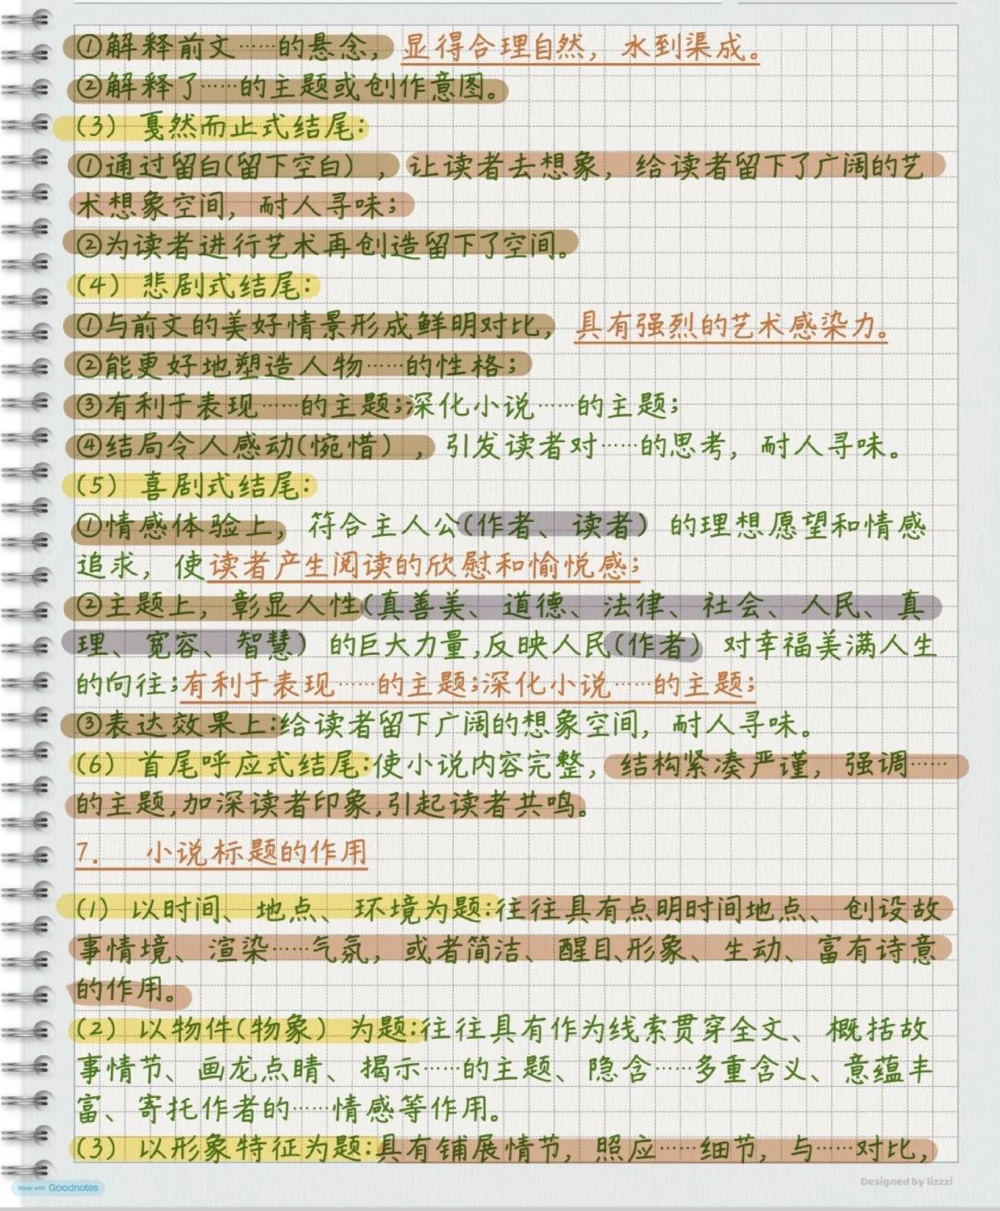 ①解释前文……的悬念，显得合理自然，水到渠成。
②解释了……的主题或创作意图。
(3) 戛然而止式结尾：
①通过留白(留下空白)，让读者去想象，给读者留下了广阔的艺
术想象空间，耐人寻味；
②为读者进行艺术再创造留下了空间。
(4) 悲剧式结尾：
①与前文的美好情景形成鲜明对比，具有强烈的艺术感染力。
②能更好地塑造人物……的性格；
③有利于表现……的主题；深化小说……的主题；
④结局令人感动(惋惜)，引发读者对……的思考，耐人寻味。
(5) 喜剧式结尾：
①情感体验上，符合主人公(作者、读者)的理想愿望和情感
追求，使读者产生阅读的欣慰和愉悦感；
②主题上，彰显人性(真善美、道德、法律、社会、人民、真
理、宽容、智慧)的巨大力量，反映人民(作者)对幸福美满人生
的向往；有利于表现……的主题；深化小说……的主题；
③表达效果上：给读者留下广阔的想象空间，耐人寻味。
(6) 首尾呼应式结尾：使小说内容完整，结构紧凑严谨，强调……
的主题，加深读者印象，引起读者共鸣。
7. 小说标题的作用
(1) 以时间、地点、环境为题：往往具有点明时间地点、创设故
事情境、渲染……气氛，或者简洁、醒目、形象、生动、富有诗意
的作用。
(2) 以物件(物象)为题：往往具有作为线索贯穿全文、概括故
事情节、画龙点睛、揭示……的主题、隐含……多重含义、意蕴丰
富、寄托作者的……情感等作用。
(3) 以形象特征为题：具有铺展情节，照应……细节，与……对比，
Made with Goodnotes
Designed by lizzzi